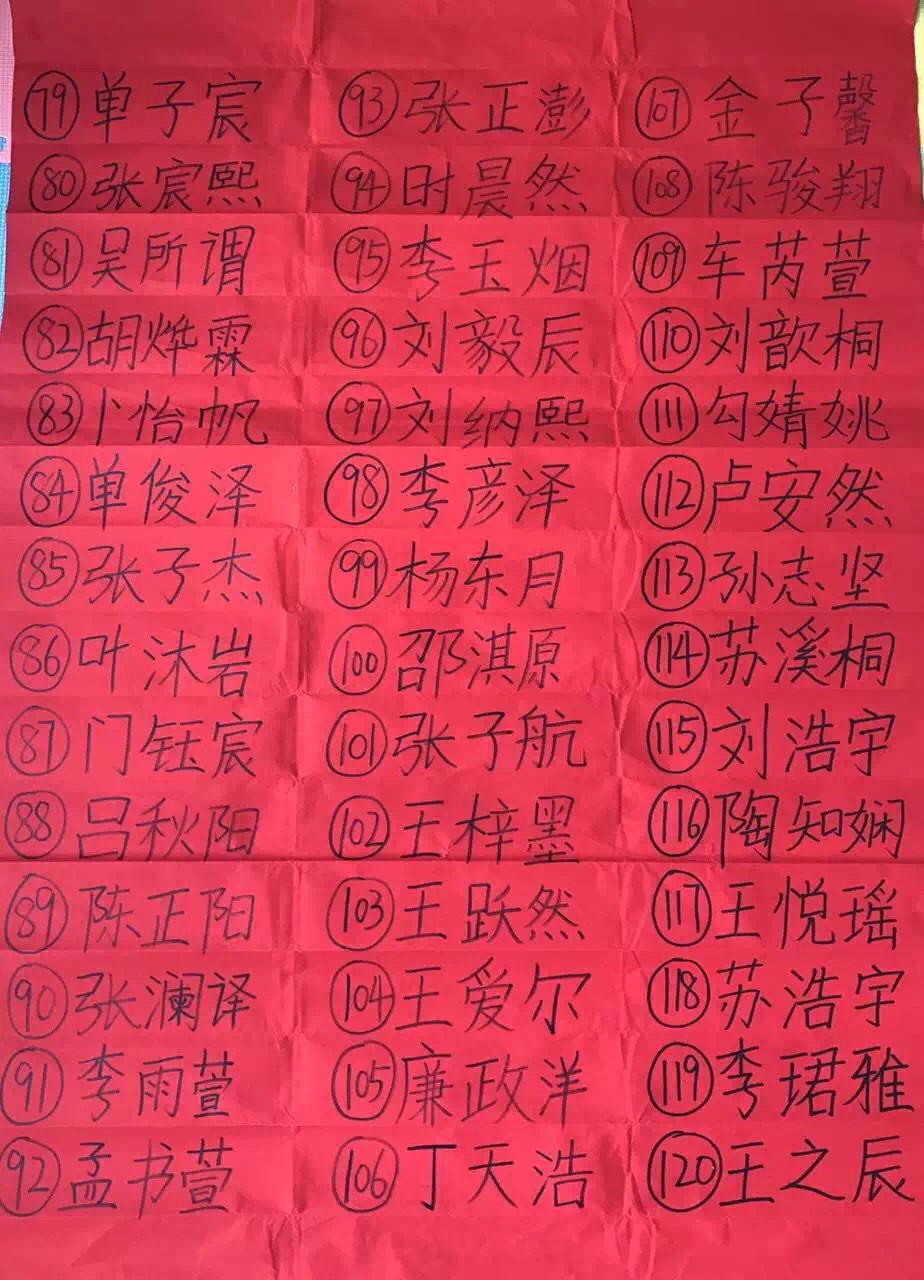 79 单子宸
80 张宸熙
81 吴所谓
82 胡烨霖
83 卜怡帆
84 单俊泽
85 张子杰
86 叶沐岩
87 门钰宸
88 吕秋阳
89 陈正阳
90 张澜译
91 李雨萱
92 孟书萱
93 张正澎
94 时晨然
95 李玉烟
96 刘毅辰
97 刘纳熙
98 李彦泽
99 杨东月
100 邵淇原
101 张子航
102 王梓墨
103 王跃然
104 王爱尔
105 廉政洋
106 丁天浩
107 金子馨
108 陈骏翔
109 车芮萱
110 刘歆桐
111 勾婧姚
112 卢安然
113 孙志坚
114 苏溪桐
115 刘浩宇
116 陶知娴
117 王悦瑶
118 苏浩宇
119 李珺雅
120 王之辰